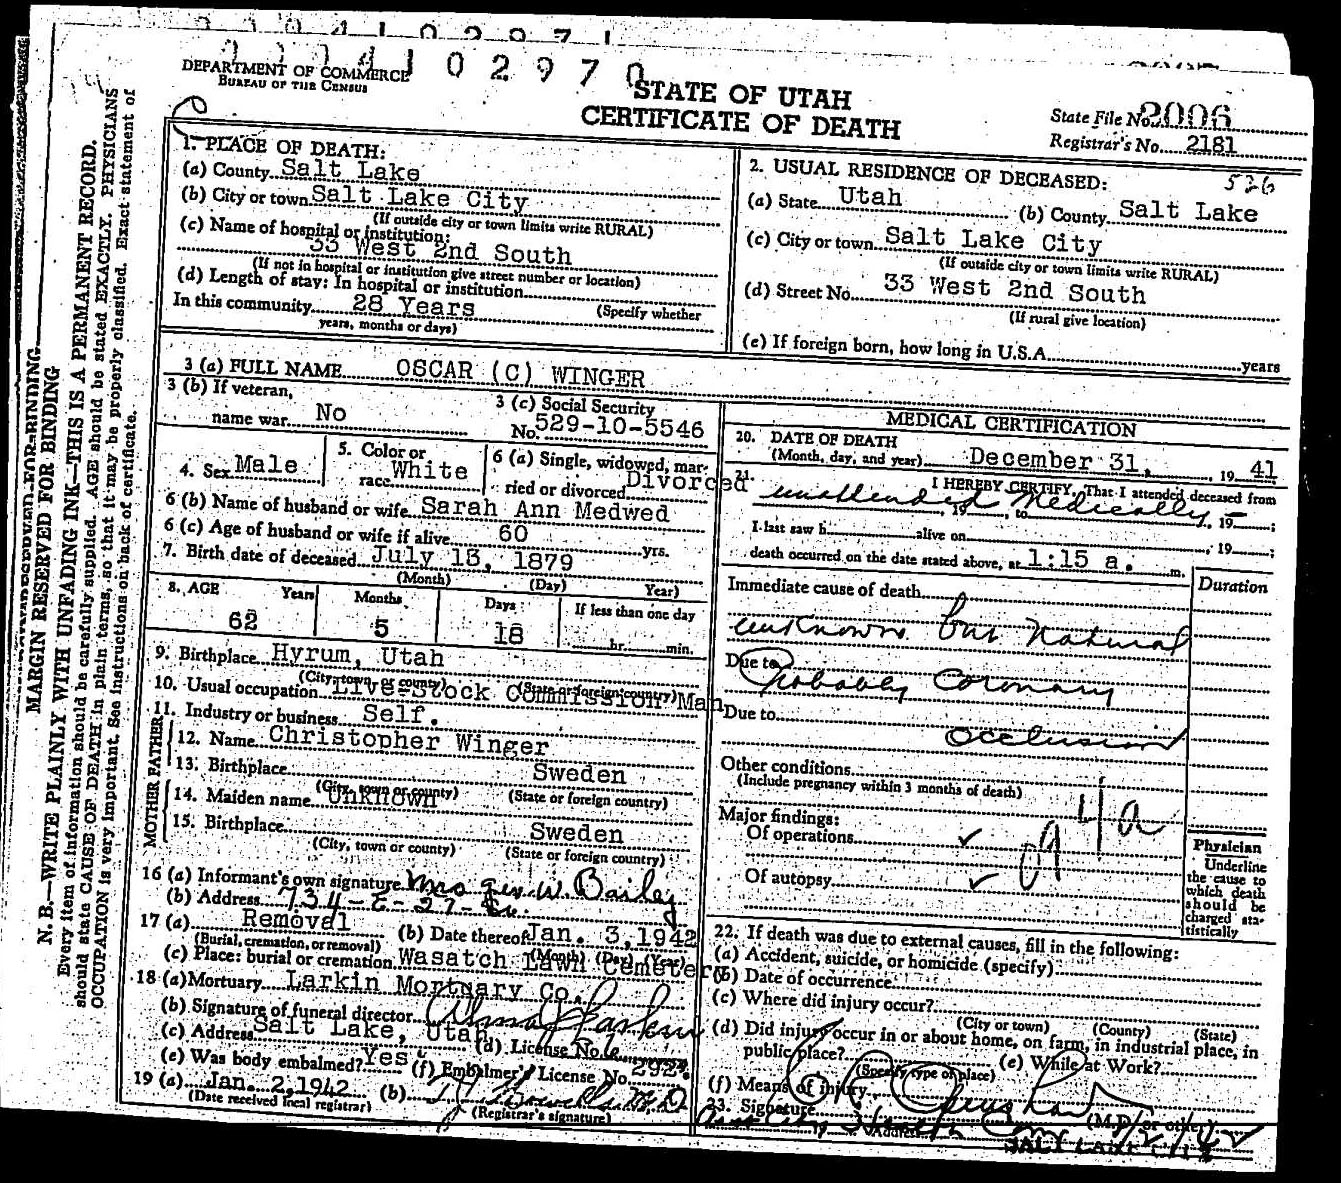 3 3 0 4 1 0 2 9 7 1
3 3 0 4 1 0 2 9 7 0
DEPARTMENT OF COMMERCE
BUREAU OF THE CENSUS
STATE OF UTAH
CERTIFICATE OF DEATH
State File No. 2006
Registrar's No. 2181
MARGIN RESERVED FOR BINDING
MARGIN RESERVED FOR BINDING
N. B.—WRITE PLAINLY WITH UNFADING INK—THIS IS A PERMANENT RECORD.
Every item of information should be carefully supplied. AGE should be stated EXACTLY. PHYSICIANS
should state CAUSE OF DEATH in plain terms, so that it may be properly classified. Exact statement of
OCCUPATION is very important. See instructions on back of certificate.
1. PLACE OF DEATH:
(a) County Salt Lake
(b) City or town Salt Lake City
(If outside city or town limits write RURAL)
(c) Name of hospital or institution:
33 West 2nd South
(If not in hospital or institution give street number or location)
(d) Length of stay: In hospital or institution
In this community 28 Years (Specify whether
years, months or days)
2. USUAL RESIDENCE OF DECEASED: 526
(a) State Utah (b) County Salt Lake
(c) City or town Salt Lake City
(If outside city or town limits write RURAL)
(d) Street No. 33 West 2nd South
(If rural give location)
(e) If foreign born, how long in U.S.A. years
3 (a) FULL NAME OSCAR (C) WINGER
3 (b) If veteran,
name war No
3 (c) Social Security
No. 529-10-5546
4. Sex Male
5. Color or
race White
6 (a) Single, widowed, mar-
ried or divorced Divorced
6 (b) Name of husband or wife Sarah Ann Medwed
6 (c) Age of husband or wife if alive 60 yrs.
7. Birth date of deceased July 13, 1879
(Month) (Day) Year)
8. AGE Years Months Days If less than one day
62 5 18 hr. min.
9. Birthplace Hyrum, Utah
(City, town, or county) (State or foreign country)
10. Usual occupation Live-Stock Commission Man
11. Industry or business Self.
FATHER
12. Name Christopher Winger
13. Birthplace Sweden
(City, town or county) (State or foreign country)
MOTHER
14. Maiden name Unknown
15. Birthplace Sweden
(City, town or county) (State or foreign country)
16 (a) Informant's own signature Mrs Geo. W. Bailey
(b) Address 734-E-27-So.
17 (a) Removal (b) Date thereof Jan. 3, 1942
(Burial, cremation, or removal) (Month) (Day) (Year)
(c) Place: burial or cremation Wasatch Lawn Cemetery
18 (a) Mortuary Larkin Mortuary Co.
(b) Signature of funeral director Alma J Larkin
(c) Address Salt Lake, Utah (d) License No.
(e) Was body embalmed? Yes (f) Embalmer's License No. 292
19 (a) Jan. 2, 1942 (b)
(Date received local registrar) (Registrar's signature)
MEDICAL CERTIFICATION
20. DATE OF DEATH
(Month, day, and year) December 31, 19 41
21. I HEREBY CERTIFY, That I attended deceased from
unattended Medically 19 to 19 ;
I last saw h alive on , 19 ;
death occurred on the date stated above, at 1:15 a. m.
Immediate cause of death Duration
unknown but Natural
Due to Probably Coronary
Due to
occlusion
Other conditions
(Include pregnancy within 3 months of death)
94a
Major findings:
Of operations ✓
Of autopsy ✓
Physician
Underline
the cause to
which death
should be
charged sta-
tistically
22. If death was due to external causes, fill in the following:
(a) Accident, suicide, or homicide (specify)
(b) Date of occurrence
(c) Where did injury occur?
(City or town) (County) (State)
(d) Did injury occur in or about home, on farm, in industrial place, in
public place? (e) While at Work?
(Specify type of place)
(f) Means of injury
23. Signature (M.D. or other)
Address 1/2/42
SALT LAKE CITY